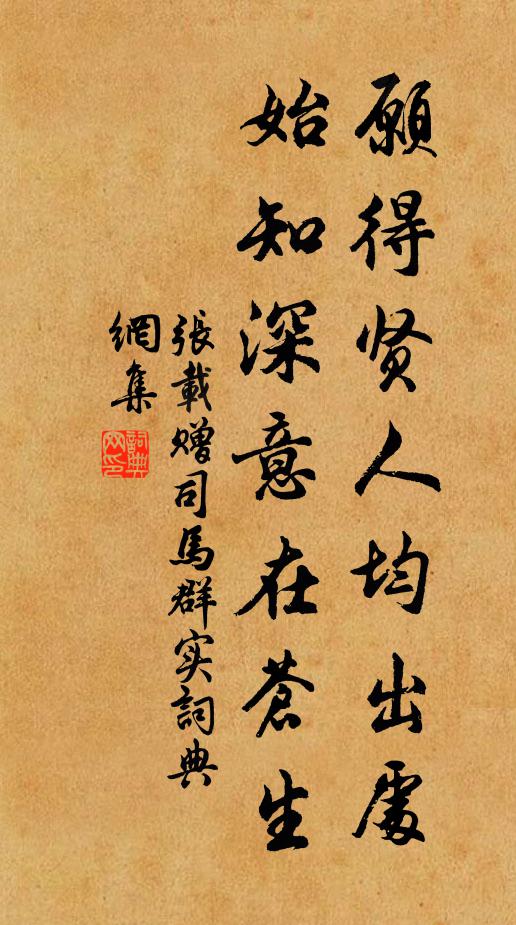 願得贤人均出處
始知深意在蒼生
張載贈司馬群实詞典
網集
詞典
网印